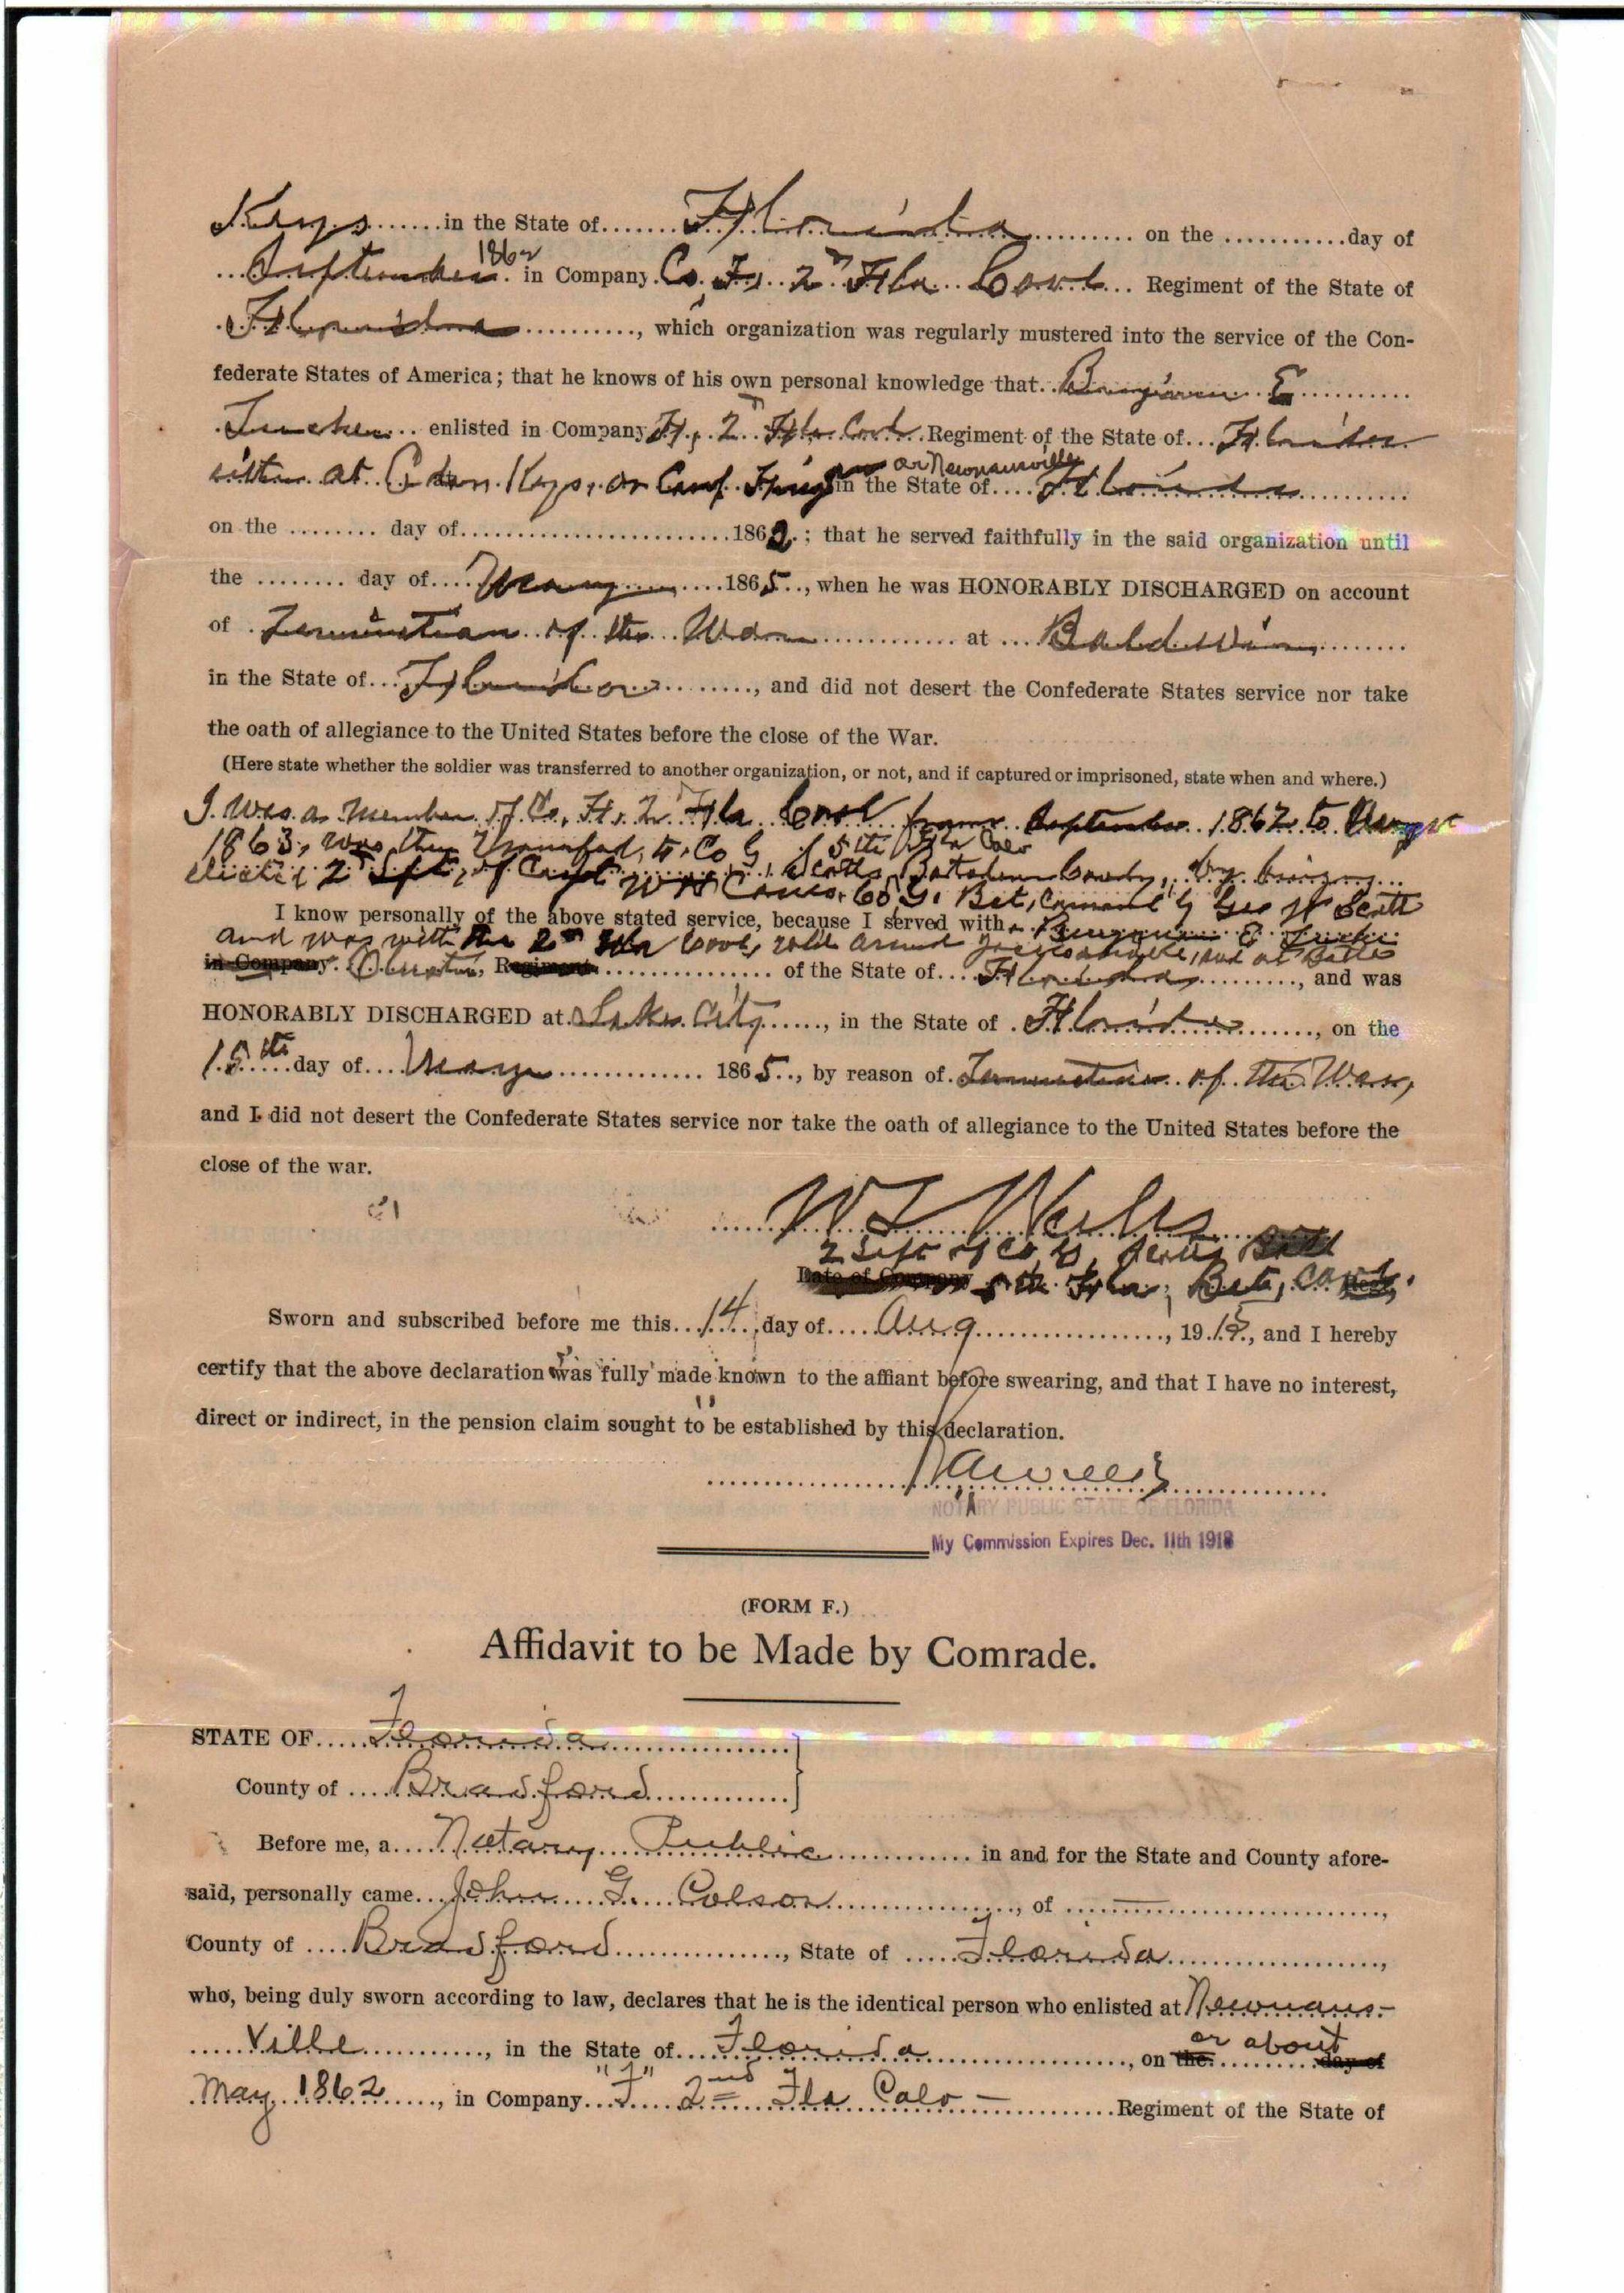 Keys in the State of Florida on the day of
September 1862 in Company Co. F, 2nd Fla Cavl Regiment of the State of
Florida, which organization was regularly mustered into the service of the Con-
federate States of America; that he knows of his own personal knowledge that Benjamin E
Tucker enlisted in Company F, 2nd Fla Cavl Regiment of the State of Florida
either at Cedar Keys, or Camp or Newnansville in the State of Florida
on the day of 1862; that he served faithfully in the said organization until
the day of May 1865, when he was HONORABLY DISCHARGED on account
of Termination of the War at Baldwin
in the State of Florida, and did not desert the Confederate States service nor take
the oath of allegiance to the United States before the close of the War.
(Here state whether the soldier was transferred to another organization, or not, and if captured or imprisoned, state when and where.)
I was a member of Co. F, 2nd Fla Cavl from September 1862 to August
1863, was then Transfered to Co G of 5th Fla Calv
elected 2nd of Capt W H Co G. Bat, Comand by Geo W Scott
I know personally of the above stated service, because I served with Benjamin E Tucker
and was with the 2nd Fla Cavl, around Jacksonville, and at Battle
in Company Olustee, Regiment of the State of Florida, and was
HONORABLY DISCHARGED at Lake City, in the State of Florida, on the
15th day of May 1865, by reason of Termination of the War,
and I did not desert the Confederate States service nor take the oath of allegiance to the United States before the
close of the war.
W Wells
2 of Co G, Scotts Batt
Date of Company 5th Fla, Bat, Cavl.
Sworn and subscribed before me this 14 day of Aug, 1915, and I hereby
certify that the above declaration was fully made known to the affiant before swearing, and that I have no interest,
direct or indirect, in the pension claim sought to be established by this declaration.
NOTARY PUBLIC STATE OF FLORIDA
My Commission Expires Dec. 11th 1918
(FORM F.)
Affidavit to be Made by Comrade.
STATE OF Florida
County of Bradford
Before me, a Notary Public in and for the State and County afore-
said, personally came John G. Colson, of ,
County of Bradford, State of Florida,
who, being duly sworn according to law, declares that he is the identical person who enlisted at Newnans-
ville, in the State of Florida, on the or about day of
May 1862, in Company "F" 2nd Fla Calv - Regiment of the State of